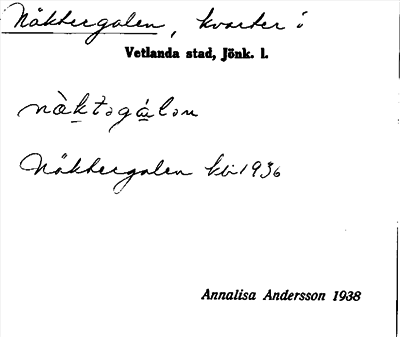 Näktergalen, kvarter i
Vetlanda stad, Jönk. l.
nàktəgálən
Näktergalen kv 1936
Annalisa Andersson 1938